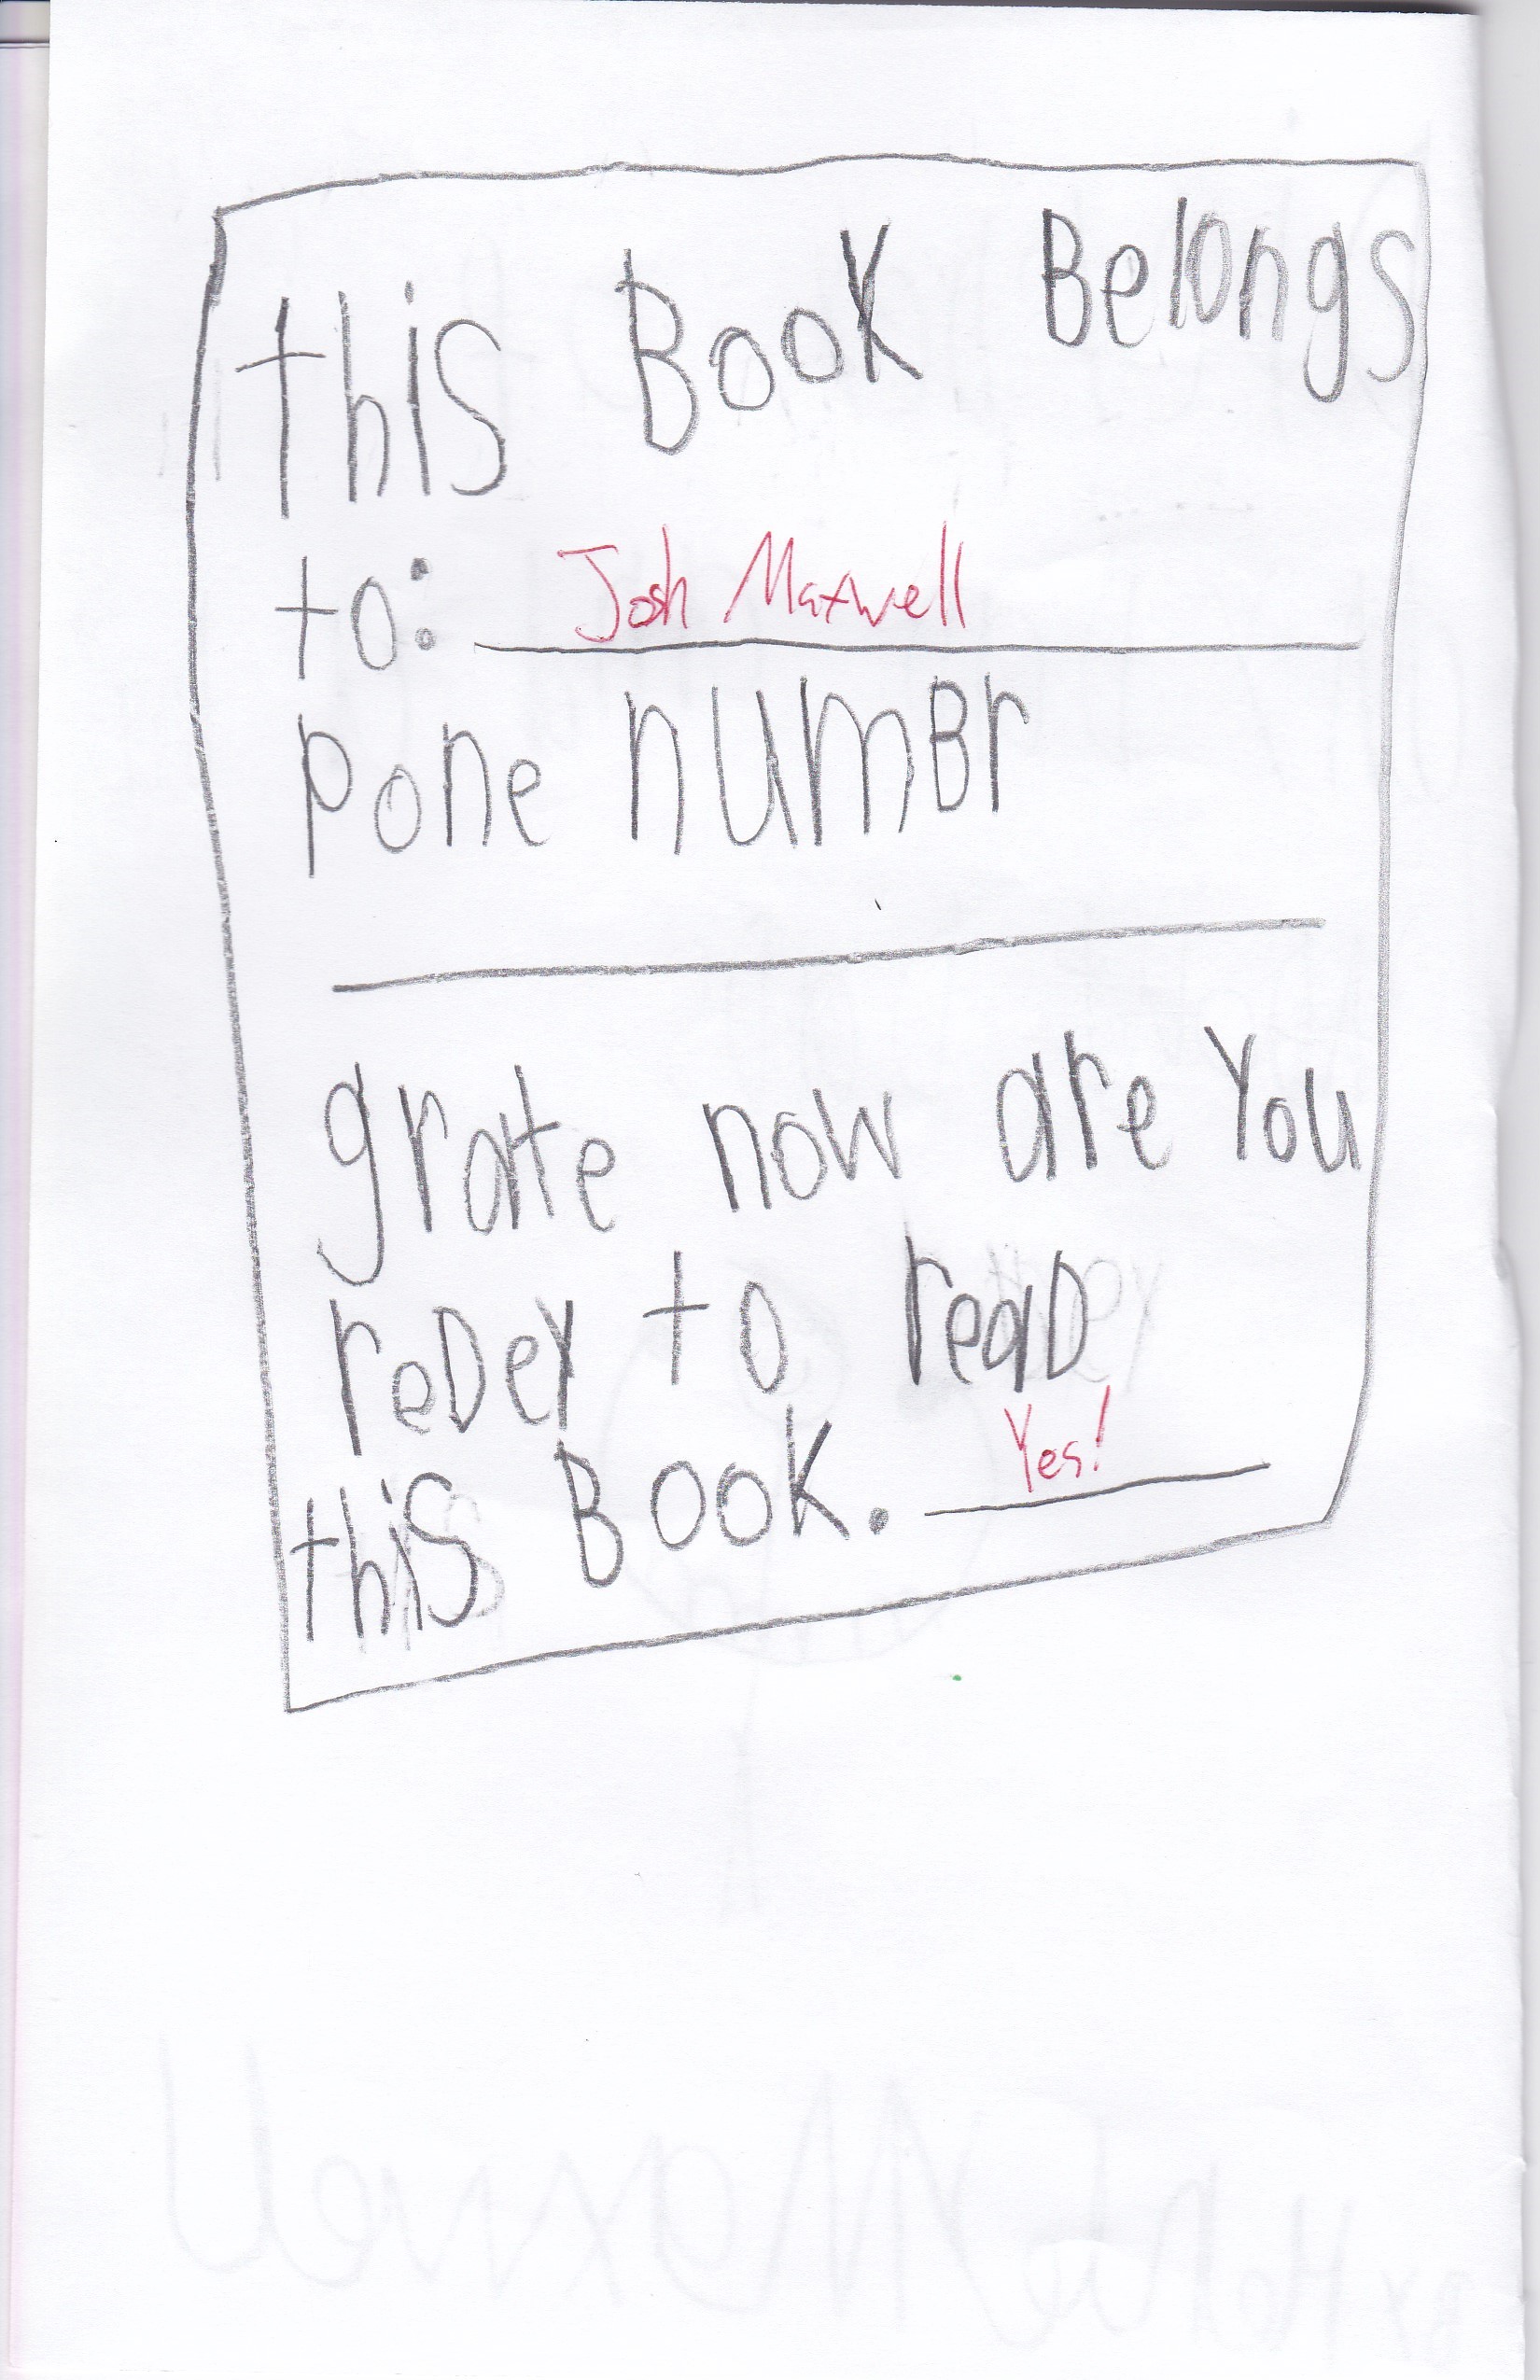 this Book Belongs
to: Josh Maxwell
pone numBr
grate now are You
reDey to reaD
this Book. Yes!